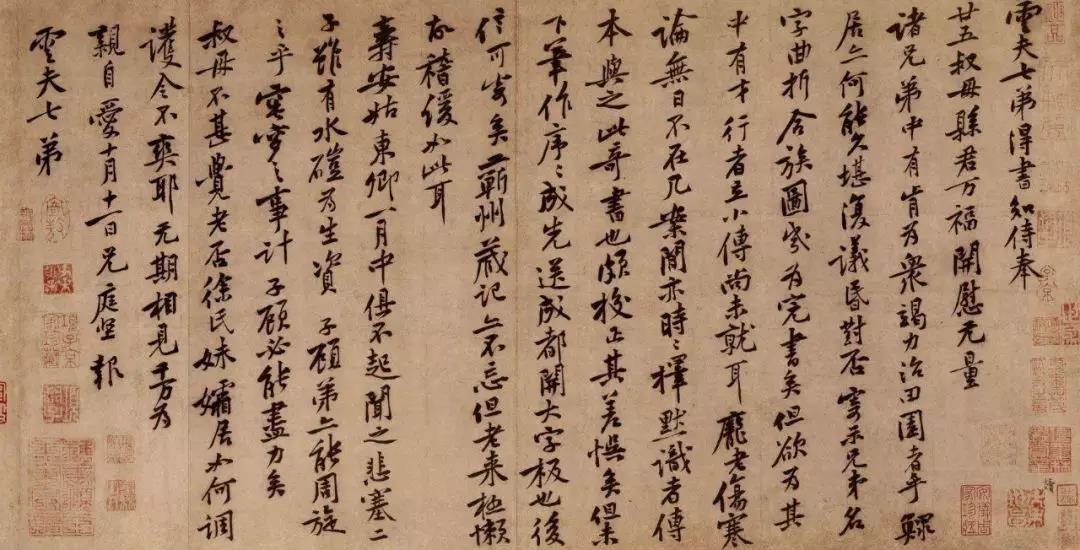 雲夫七弟得書知侍奉
廿五叔母縣君万福開慰无量
諸兄弟中有肯為衆竭力治田園者乎鰥
居亦何能久堪復議昏對否寄示兄弟名
字曲折合族圖幾为完書矣但欲为其
中有才行者立小傳尚未就耳龐老傷寒
論無日不在几案間亦時〻擇默識者傳
本與之此奇書也頗校正其差悞矣但未
下筆作序〻成先送成都開大字板也後
信可寄矣蘄州藏記亦不忘但老来極懶
故稽緩如此耳
壽安姑東卿一月中俱不起聞之悲塞二
子雖有水磑为生資子顧弟亦能周旋
之乎窀穸之事計子顧必能盡力矣
叔母不甚覺老否徐氏妹孀居如何調
護令不爽耶无期相見千万为
親自愛十月十一日兄庭堅報
雲夫七弟